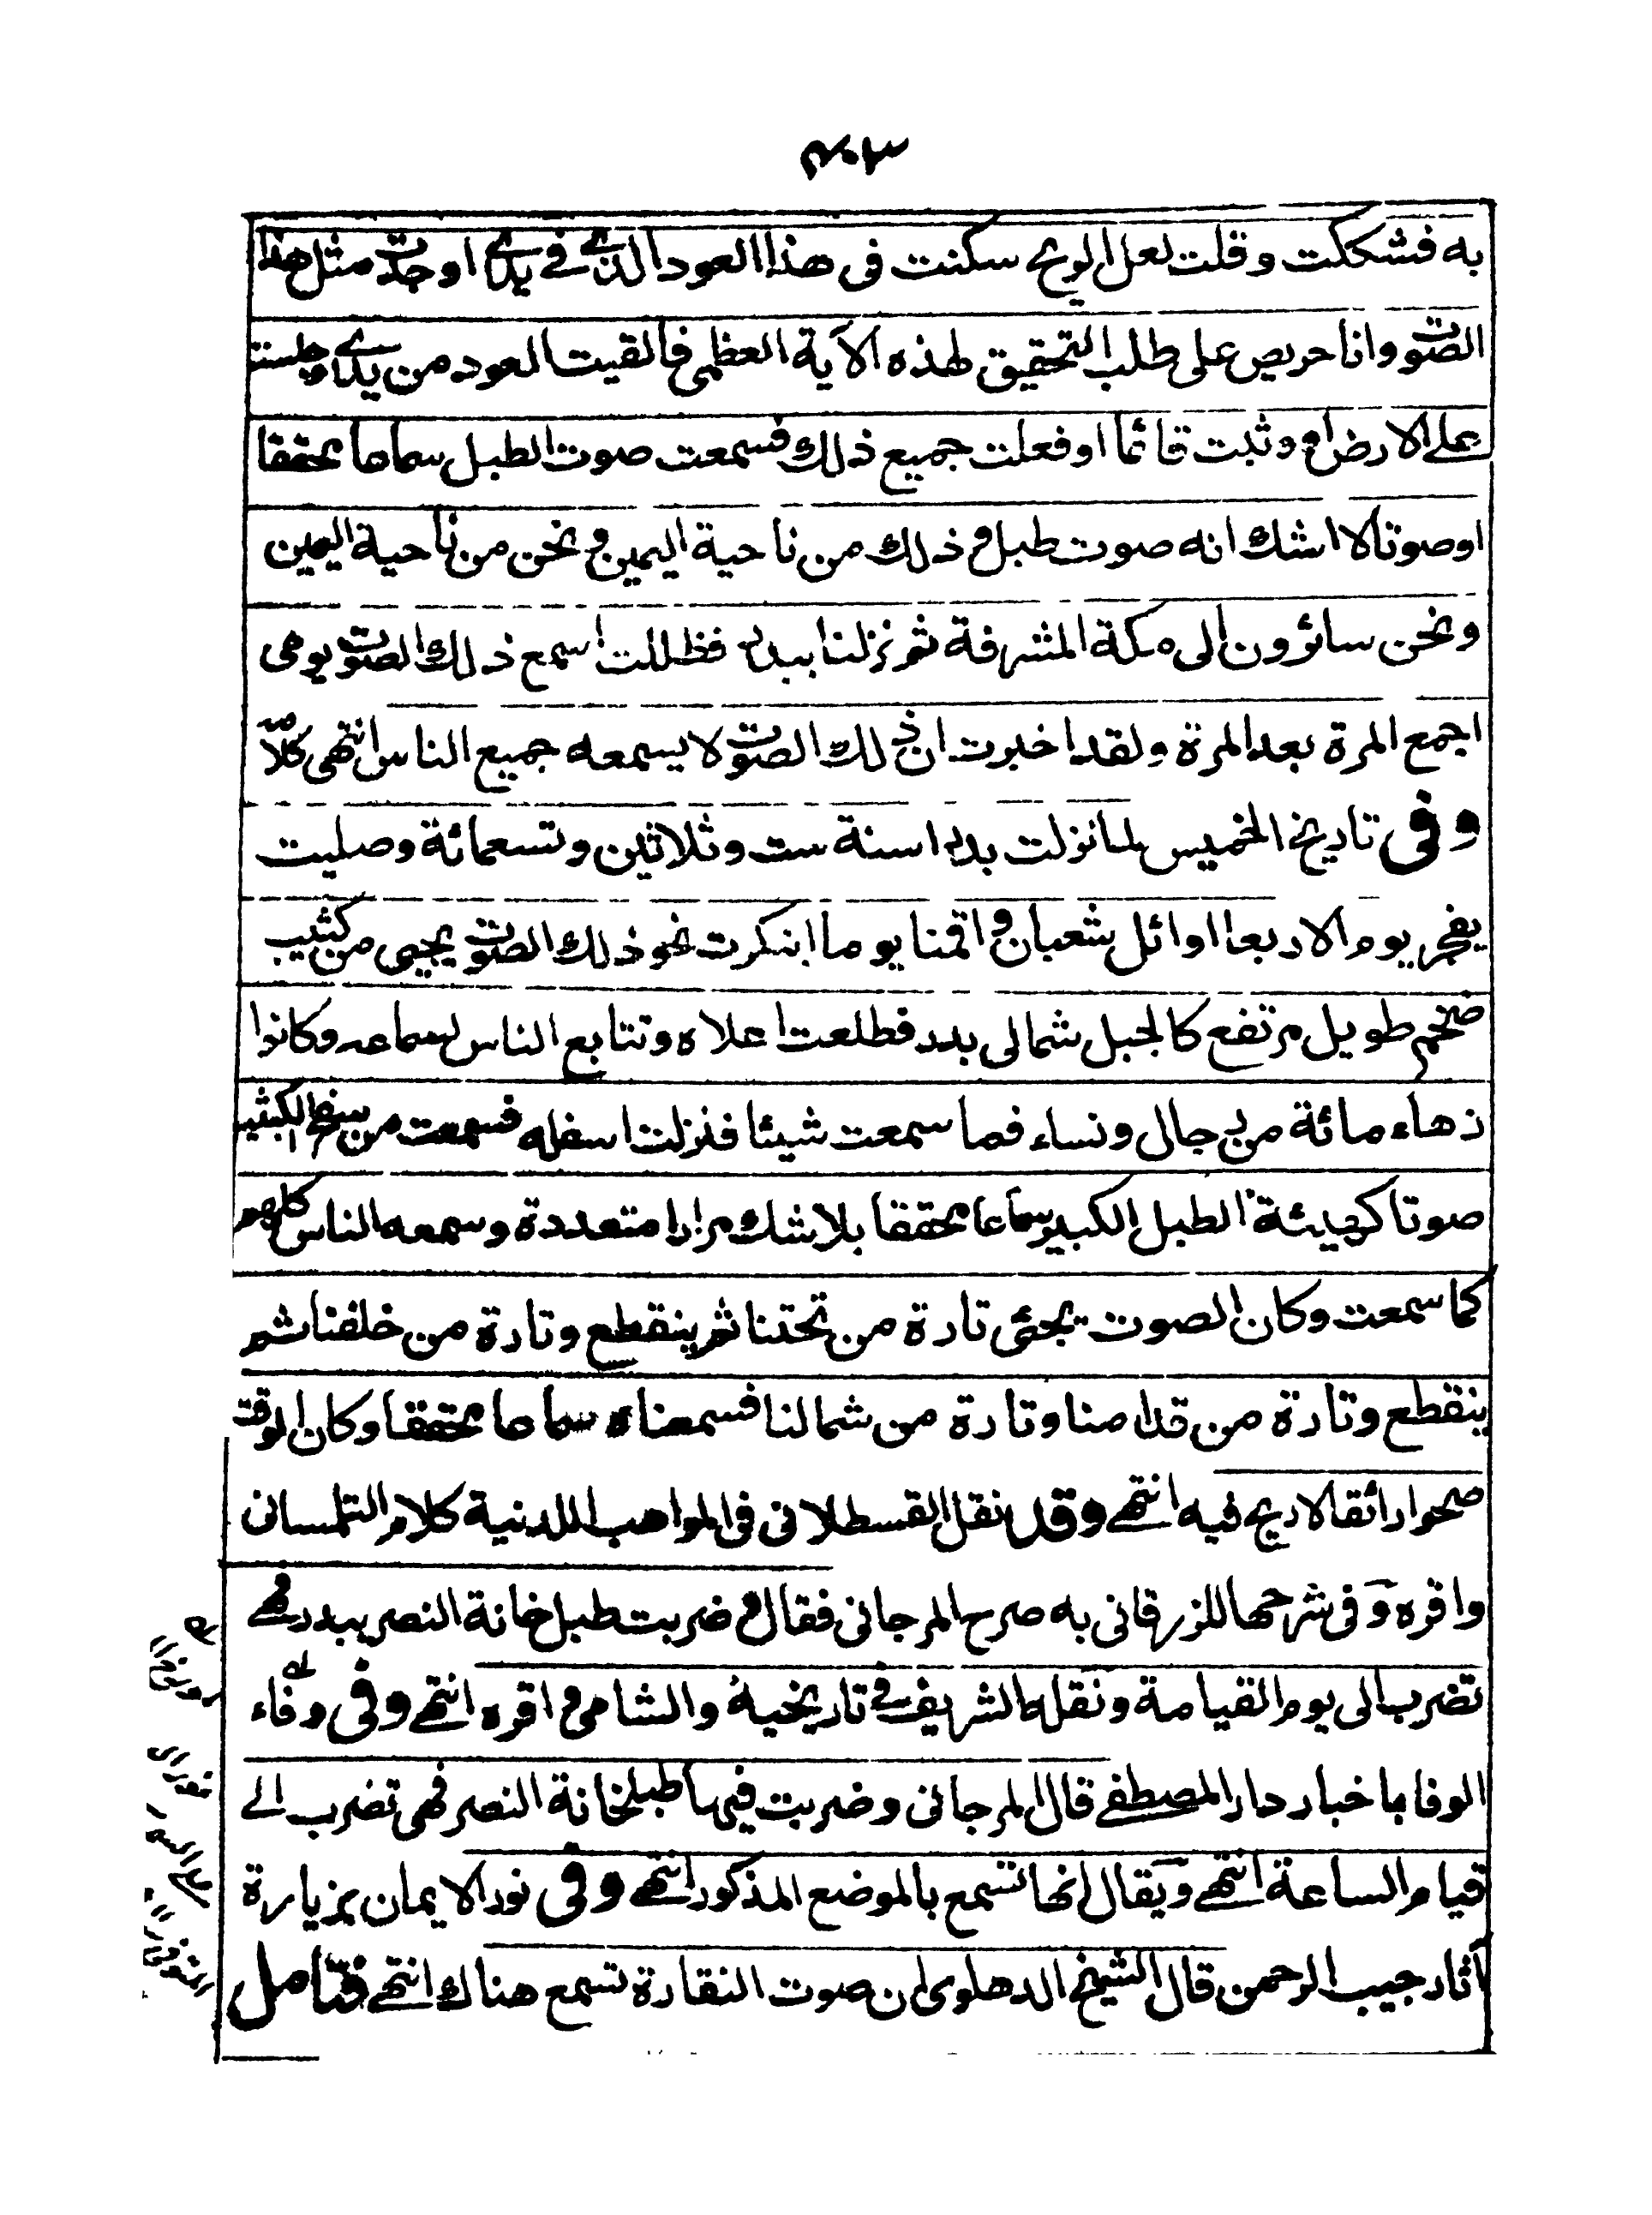 ۴۰۳
به فشككت وقلت لعل الريح سكنت في هذا العود الذي في يدي او حدث مثل هذا
الصوت وانا حريص على طلب التحقيق لهذه الآية العظمى فالقيت العود من يدي وجلست
على الارض او وثبت قائما او فعلت جميع ذلك فسمعت صوت الطبل سماعا محققا
او صوتا لا اشك انه صوت طبل و ذلك من ناحية اليمين و نحن من ناحية اليمين
ونحن سائرون الى مكة المشرفة ثم نزلنا ببدر فظللت اسمع ذلك الصوت يومي
اجمع المرة بعد المرة ولقد اخبرت ان ذلك الصوت لا يسمعه جميع الناس انتهى كلامه
وفى تاريخ الخميس لما نزلت بدرا سنة ست وثلاثين وتسعمائة وصليت
يفجر يوم الاربعا اوائل شعبان و اقمنا يوما ابتكرت نحو ذلك الصوت يجيى من كثيب
ضخم طويل مرتفع كالجبل شمالى بدر فطلعت اعلاه وتتابع الناس لسماعه وكانوا
زهاء مائة من رجال ونساء فما سمعت شيئا فنزلت اسفله فسمعت من سفح الكثيب
صوتا كهيئة الطبل الكبير سماعا محققا بلا شك مرارا متعددة وسمعه الناس كلهم
كما سمعت وكان الصوت يجئى تارة من تحتنا ثم ينقطع وتارة من خلفنا ثم
ينقطع وتارة من قدامنا وتارة من شمالنا فسمعناه سماعا محققا وكان الوقت
صحوا رائقا لا ريح فيه انتهے وقد نقل القسطلانى فى المواهب اللدنية كلام التلمسانى
واقره وفى شرحها للزرقانى به صرح المرجانى فقال و ضربت طبل خانة النصر ببدر فهے
تضرب الى يوم القيامة ونقله الشريف فے تاريخيه والشامى و اقره انتهے وفى وفاء
الوفا باخبار دار المصطفے قال المرجانى وضربت فيها طبلخانة النصر فهى تضرب الے
قيام الساعة انتهے ويقال انها تسمع بالموضع المذكور انتهے وفى نور الايمان بزيارة
آثار حبيب الرحمن قال الشيخ الدهلوى ان صوت النقارة تسمع هناك انتهے فتامل